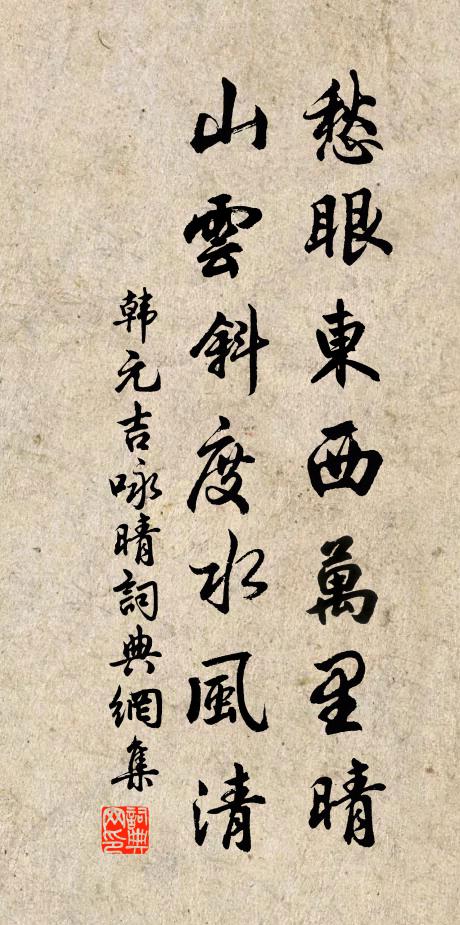 愁眼東西萬里晴
山雲斜度水風清
韩元吉咏晴詞典網集
詞典网印